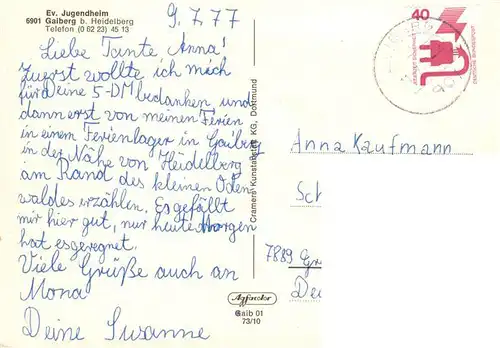 Ev. Jugendheim
6901 Gaiberg b. Heidelberg
Telefon (0 62 23) 45 13
9.7.77
Liebe Tante Anna!
Zuerst wollte ich mich
für Deine 5-DM bedanken und
dann erst von meinen Ferien
in einem Ferienlager in Gaiberg
in der Nähe von Heidelberg
am Rand des kleinen Oden
waldes erzählen. Es gefällt
mir hier gut, nur heute Morgen
hat es geregnet.
Viele Grüße auch an
Mona
Deine Susanne
Cramers Kunstanstalt KG, Dortmund
Gaib 01
73/10
40
Anna Kaufmann
Sch
7889 Gr
Deu